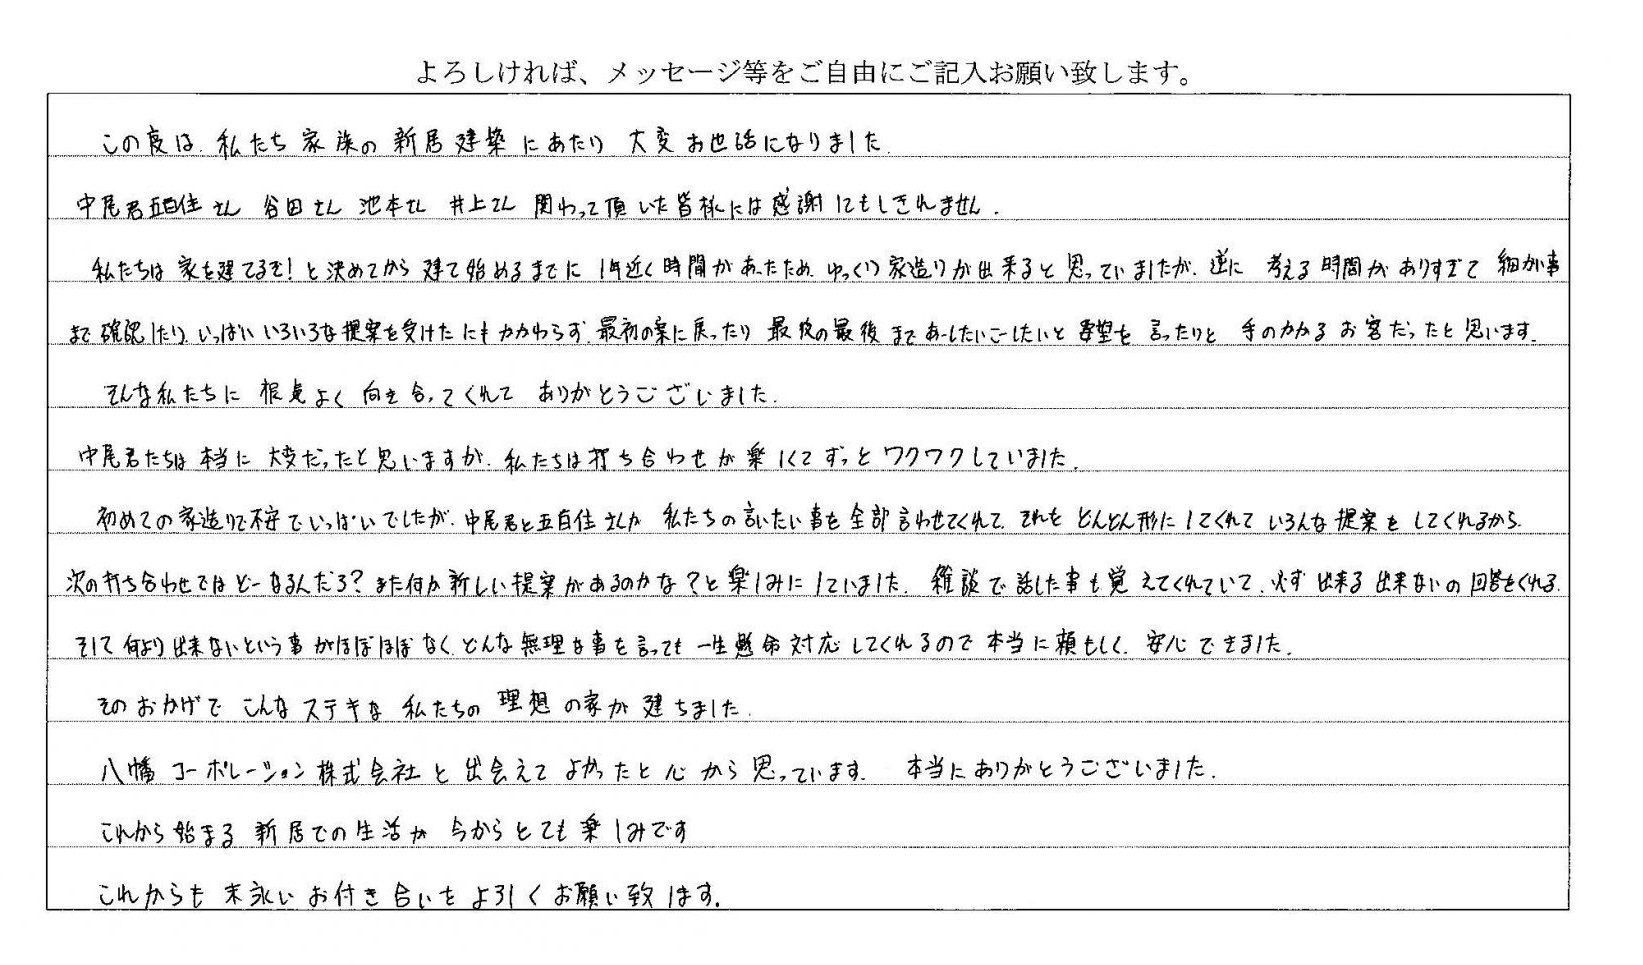 よろしければ、メッセージ等をご自由にご記入お願い致します。
この度は、私たち家族の新居建築にあたり 大変お世話になりました。
中尾君 五百住さん 谷田さん 池本さん 井上さん 関わって頂いた皆様には感謝してもしきれません。
私たちは 家を建てるぞ！と決めてから 建て始めるまでに 1年近く時間があったため、ゆっくり家造りが出来ると思っていましたが、逆に 考える時間がありすぎて 細かい事
まで確認したり、いっぱい いろいろな提案を受けたにもかかわらず、最初の案に戻ったり 最後の最後まであーしたいこーしたいと要望を言ったりと 手のかかるお客だったと思います。
そんな私たちに 根気よく向き合ってくれて ありがとうございました。
中尾君たちは本当に 大変だったと思いますが、私たちは打ち合わせが楽しくて ずっとワクワクしていました。
初めての家造りで不安でいっぱいでしたが、中尾君と五百住さんが 私たちの言いたい事を全部言わせてくれて、それを どんどん形にしてくれて いろんな提案をしてくれるから、
次の打ち合わせではどーなるんだろ？また何か新しい提案があるのかな？と楽しみにしていました。 雑談で話した事も覚えてくれていて、必ず 出来る 出来ないの回答をくれる。
そして何より出来ないという事がほぼほぼなく、どんな無理な事を言っても一生懸命対応してくれるので 本当に頼もしく、安心できました。
そのおかげで こんなステキな 私たちの 理想の家が建ちました。
八幡コーポレーション株式会社と出会えて よかったと心から思っています。 本当にありがとうございました。
これから始まる 新居での生活が 今からとても楽しみです
これからも 末永いお付き合いをよろしくお願い致します。